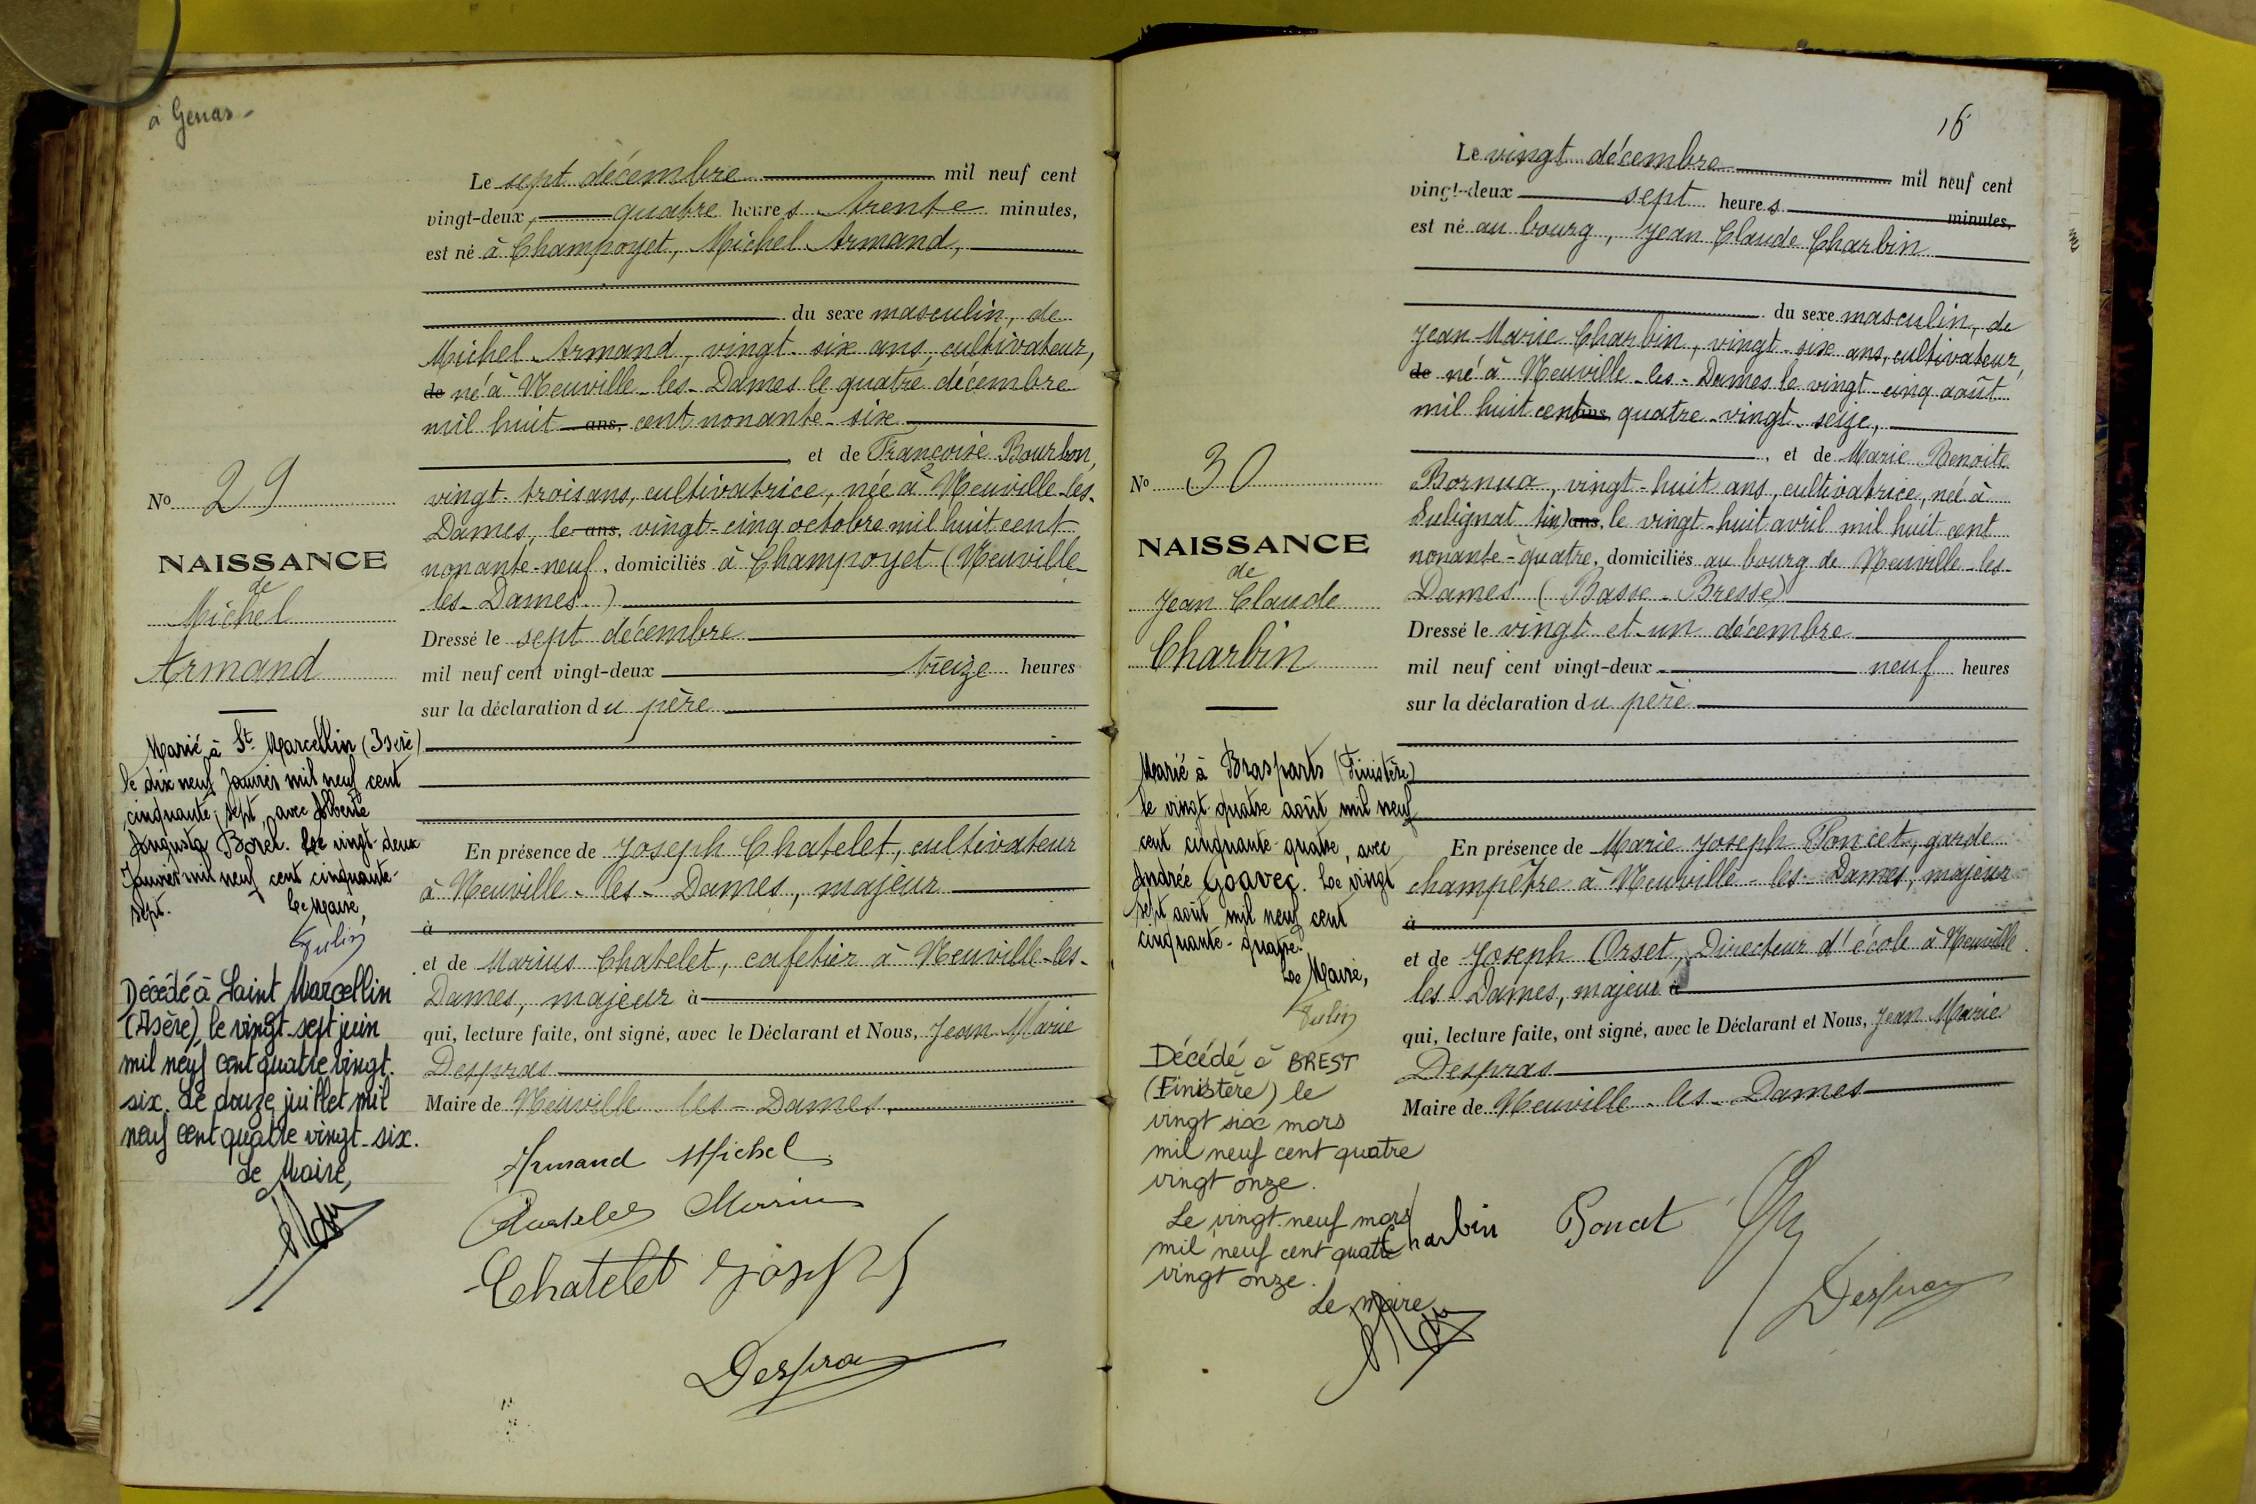 à Genas
Le sept décembre mil neuf cent
vingt-deux, quatre heures trente minutes,
est né à Champoyet, Michel Armand,
du sexe masculin, de
Michel Armand, vingt-six ans, cultivateur,
de né à Neuville-les-Dames le quatre décembre
mil huit ans, cent nonante-six
et de Françoise Bourbon,
vingt-trois ans, cultivatrice, née à Neuville-les-
Dames, le ans, vingt-cinq octobre mil huit cent
nonante-neuf, domiciliés à Champoyet (Neuville-
les-Dames.)
Dressé le sept décembre
mil neuf cent vingt-deux treize heures
sur la déclaration du père
En présence de Joseph Chatelet, cultivateur
à Neuville-les-Dames, majeur
à
et de Marius Chatelet, cafetier à Neuville-les-
Dames, majeur à
qui, lecture faite, ont signé, avec le Déclarant et Nous, Jean Marie
Despras
Maire de Neuville-les-Dames.
Armand Michel
Chatelet Marius
Chatelet Joseph
Despras
No 29
NAISSANCE
de
Michel
Armand
Marié à St. Marcellin (Isère)
le dix neuf Janvier mil neuf cent
cinquante-sept, avec Alberte
Augusta Borel. Le vingt-deux
Janvier mil neuf cent cinquante-
sept.
Le Maire,
Décédé à Saint Marcellin
(Isère), le vingt-sept juin
mil neuf cent quatre vingt-
six. Le douze juillet mil
neuf cent quatre vingt-six.
Le Maire,
16
Le vingt décembre mil neuf cent
vingt-deux sept heures minutes,
est né au bourg, Jean Claude Charbin
du sexe masculin, de
Jean-Marie Charbin, vingt-six ans, cultivateur,
de né à Neuville-les-Dames le vingt-cinq août
mil huit cent ans, quatre-vingt-seize,
et de Marie Benoite
Bornua, vingt-huit ans, cultivatrice, née à
Sulignat (Ain) ans, le vingt-huit avril mil huit cent
nonante-quatre, domiciliés au bourg de Neuville-les-
Dames (Basse-Bresse)
Dressé le vingt et un décembre
mil neuf cent vingt-deux neuf heures
sur la déclaration du père
En présence de Marie Joseph Poncet, garde
champêtre à Neuville-les-Dames, majeur
à
et de Joseph Orset, Directeur d'école à Neuville-
les-Dames, majeur à
qui, lecture faite, ont signé, avec le Déclarant et Nous, Jean Marie
Despras
Maire de Neuville-les-Dames
Charbin Poncet
Despras
No 30
NAISSANCE
de
Jean Claude
Charbin
Marié à Brasparts (Finistère)
le vingt-quatre août mil neuf
cent cinquante-quatre, avec
Andrée Goavec. Le vingt
sept août mil neuf cent
cinquante-quatre.
Le Maire,
Décédé à BREST
(Finistère) le
vingt six mars
mil neuf cent quatre
vingt onze.
Le vingt-neuf mars
mil neuf cent quatre
vingt onze.
Le maire